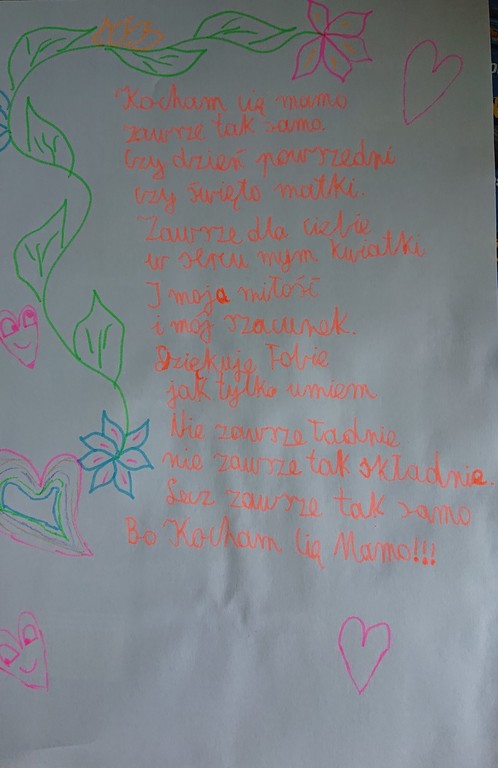 Kocham cię mamo
zawrze tak samo.
Czy dzień powrzedni
czy święto matki.
Zawrze dla ciebie
w sercu mym kwiatki
I moja miłość
i mój szacunek.
Dziękuję Tobie
jak tylko umiem
Nie zawrze ładnie
nie zawrze tak składnie.
Lecz zawrze tak samo
Bo Kocham Cię Mamo!!!